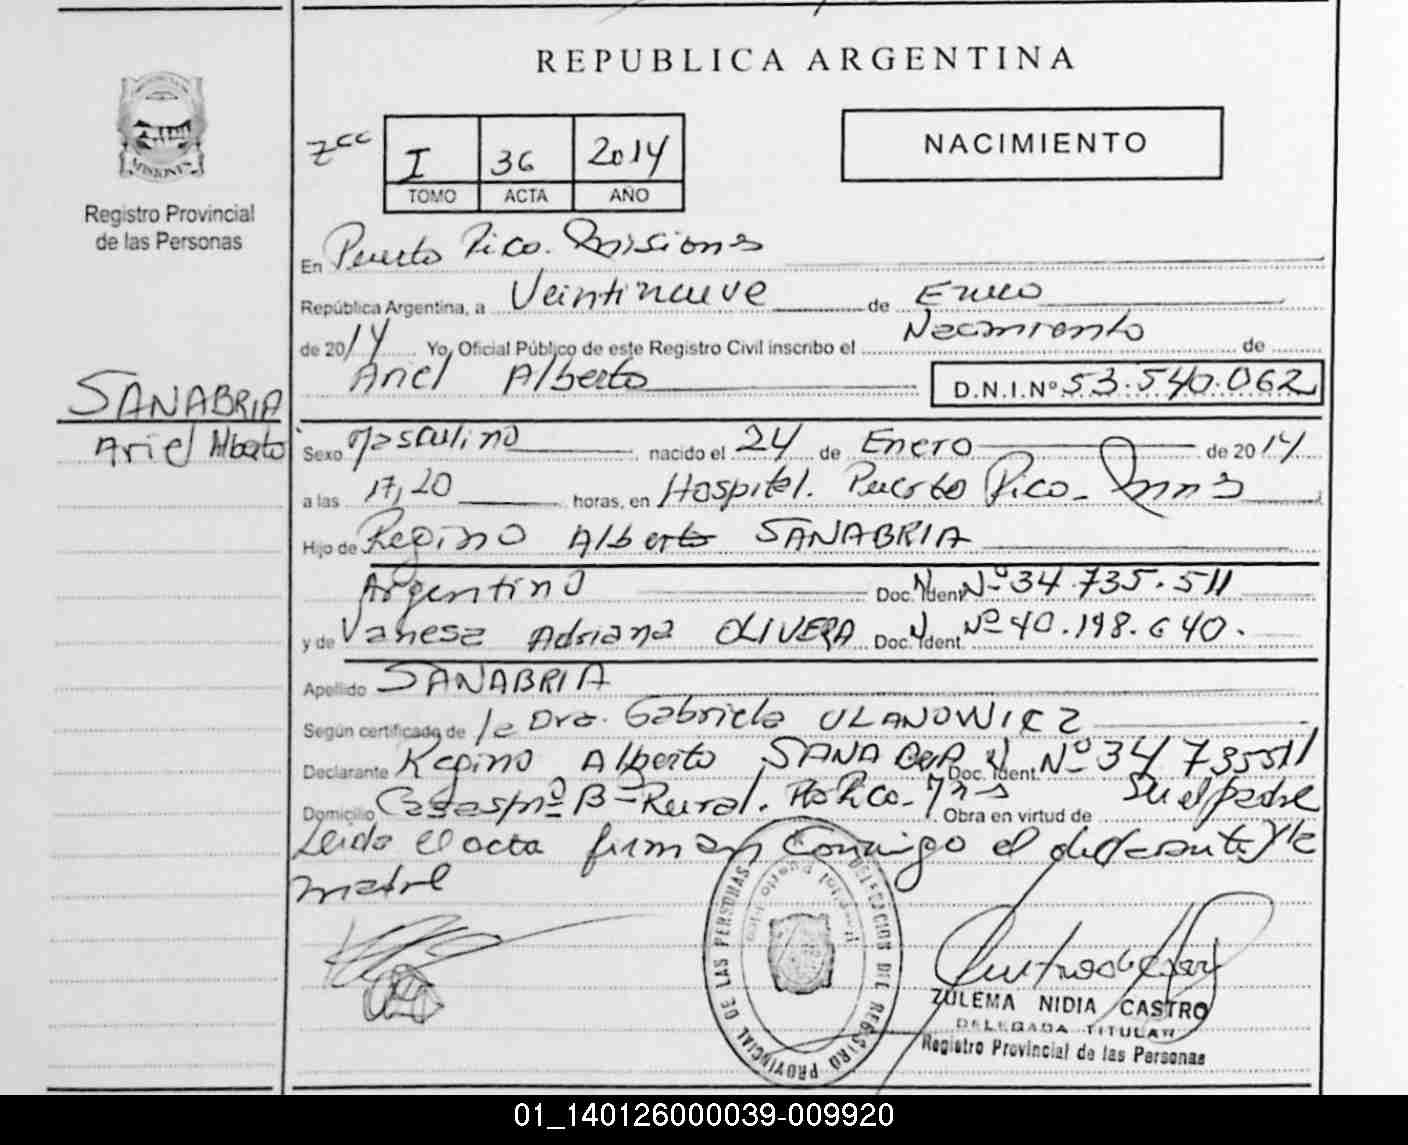 REPUBLICA ARGENTINA
MISIONES
Registro Provincial
de las Personas
zcc
I 36 2014
TOMO ACTA AÑO
NACIMIENTO
En Puerto Rico. Misiones
República Argentina, a Veintinueve de Enero
de 2014 Yo, Oficial Público de este Registro Civil inscribo el Nacimiento de
Ariel Alberto D.N.I.Nº 53.540.062
SANABRIA
Ariel Alberto
Sexo Masculino nacido el 24 de Enero de 2014
a las 17,20 horas, en Hospital. Puerto Rico - Mnes
Hijo de Regino Alberto SANABRIA
Argentino Doc. Ident Nº 34.735.511
y de Vanesa Adriana OLIVERA Doc. Ident. Nº 40.198.640.
Apellido SANABRIA
Según certificado de la Dra. Gabriela ULANOWICZ
Declarante Regino Alberto SANABRIA Doc. Ident. Nº 34735511
Domicilio Bº Rural. Pto Rico - Mnes Obra en virtud de Su el padre
Leida el acta firman conmigo el declarante y la
madre
DELEGACION DEL REGISTRO PROVINCIAL DE LAS PERSONAS
ZULEMA NIDIA CASTRO
DELEGADA TITULAR
Registro Provincial de las Personas
01_140126000039-009920